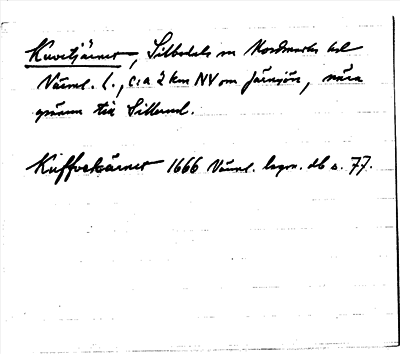 Kuvetjärnet, Silbodals sn Nordmarks hd
Värml. l., c:a 2 km NV om Järnsjön, nära
gränsen till Sillerud.
Kuffvetiärnet 1666 Värml. lagm. db s. 77.